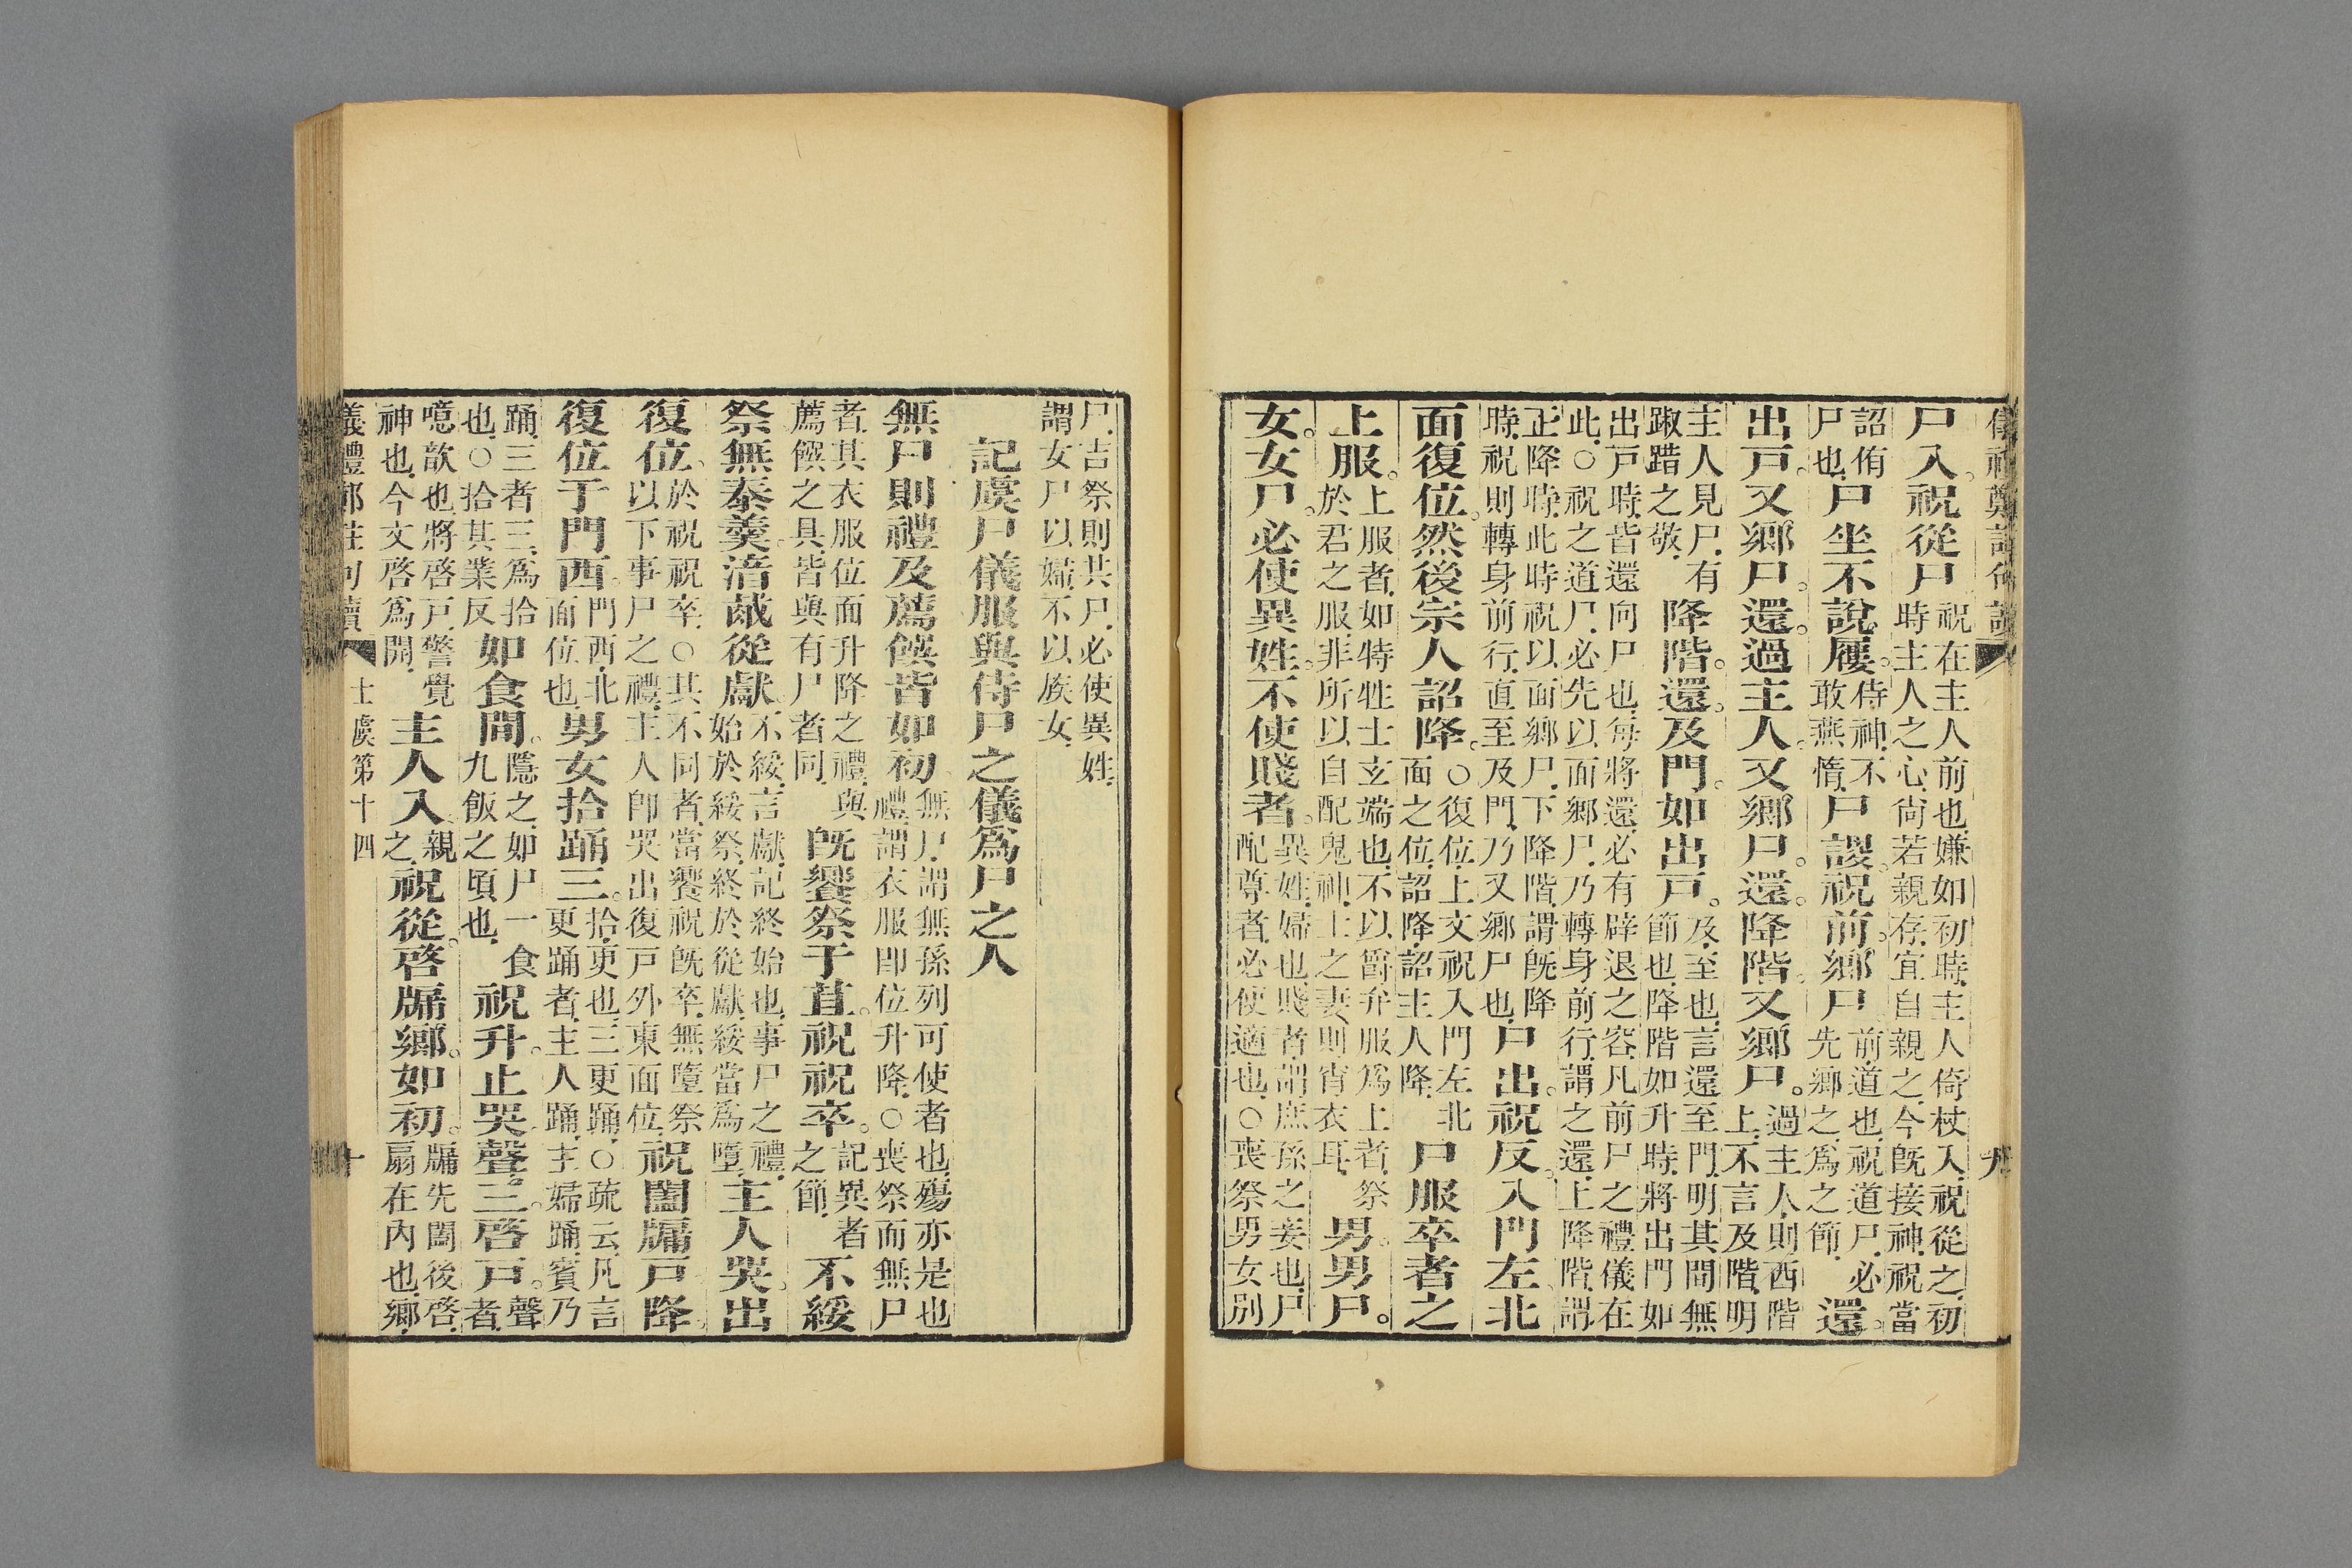 儀禮鄭註句讀 九
尸入。祝從尸。祝在主人前也，嫌如初時，主人倚杖入，祝從之，初時主人之心，尙若親存，宜自親之，今旣接神，祝當
詔侑尸也，尸坐不說屨。侍神，不敢燕惰，尸謖。祝前。鄕尸，前道也，祝道尸，必先鄕之，爲之節，還。
出戶。又鄕尸。還。過主人。又鄕尸。還。降階。又鄕尸。過主人，則西階上，不言及階，明
主人見尸，有踧踖之敬，降階。還。及門。如出戶。及，至也，言還至門，明其間無節也，降階如升時，將出門如
出戶時，皆還向尸也，每將還，必有辟退之容，凡前尸之禮儀在此，○祝之道尸，必先以面鄕尸，乃轉身前行，謂之還，上降階，謂
正降時，此時祝以面鄕尸，下降階，謂旣降時，祝則轉身前行，直至及門，乃又鄕尸也，尸出。祝反。入門左。北
面復位。然後宗人詔降。○復位，上文祝入門左北面之位，詔降，詔主人降，尸服卒者之
上服。上服者，如特牲士玄端也，不以爵弁服爲上者，祭於君之服，非所以自配鬼神，士之妻，則宵衣耳，男。男尸。
女。女尸。必使異姓。不使賤者。異姓，婦也，賤者，謂庶孫之妾也，尸配尊者，必使適也，○喪祭男女別
尸，吉祭則共尸，必使異姓，謂女尸以婦，不以族女，
記虞尸儀服與侍尸之儀爲尸之人
無尸則禮及薦饌皆如初。無尸，謂無孫列可使者也，殤亦是也，禮，謂衣服卽位升降，○喪祭而無尸
者，其衣服位面升降之禮，與薦饌之具，皆與有尸者同，旣饗祭于苴。祝祝卒。記異者之節，不綏
祭。無泰羹湆胾從獻。不綏，言獻，記終始也，事尸之禮，始於綏祭，終於從獻，綏當爲墮，主人哭。出
復位。於祝祝卒，○其不同者，當饗祝旣卒，無墮祭以下事尸之禮，主人卽哭出復戶外東面位，祝闔牖戶降。
復位于門西。門西北面位也，男女拾踊三。拾，更也，三更踊，○疏云，凡言更踊者，主人踊，主婦踊，賓乃
踊，三者三，爲拾也，○拾其業反，如食間。隱之，如尸一食九飯之頃也，祝升。止哭。聲三。啓戶。聲者，
噫歆也，將啓戶，警覺神也，今文啓爲開，主人入。親之，祝從。啓牖鄕。如初。牖先闔後啓，扇在內也，鄕，
儀禮鄭註句讀 士虞第十四 十